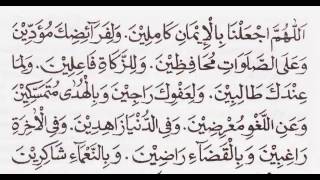 اَللّٰهُمَّ اجْعَلْنَا بِالْإِيْمَانِ كَامِلِيْنَ. وَلِفَرَآئِضِكَ مُؤَدِّيْنَ
وَعَلَى الصَّلَوَاتِ مُحَافِظِيْنَ. وَلِلزَّكَاةِ فَاعِلِيْنَ. وَلِمَا
عِنْدَكَ طَالِبِيْنَ. وَلِعَفْوِكَ رَاجِيْنَ وَبِالْهُدَى مُتَمَسِّكِيْنَ
وَعَنِ اللَّغْوِ مُعْرِضِيْنَ. وَفِي الدُّنْيَا زَاهِدِيْنَ. وَفِي الْآخِرَةِ
رَاغِبِيْنَ وَبِالْقَضَآءِ رَاضِيْنَ. وَبِالنَّعْمَآءِ شَاكِرِيْنَ